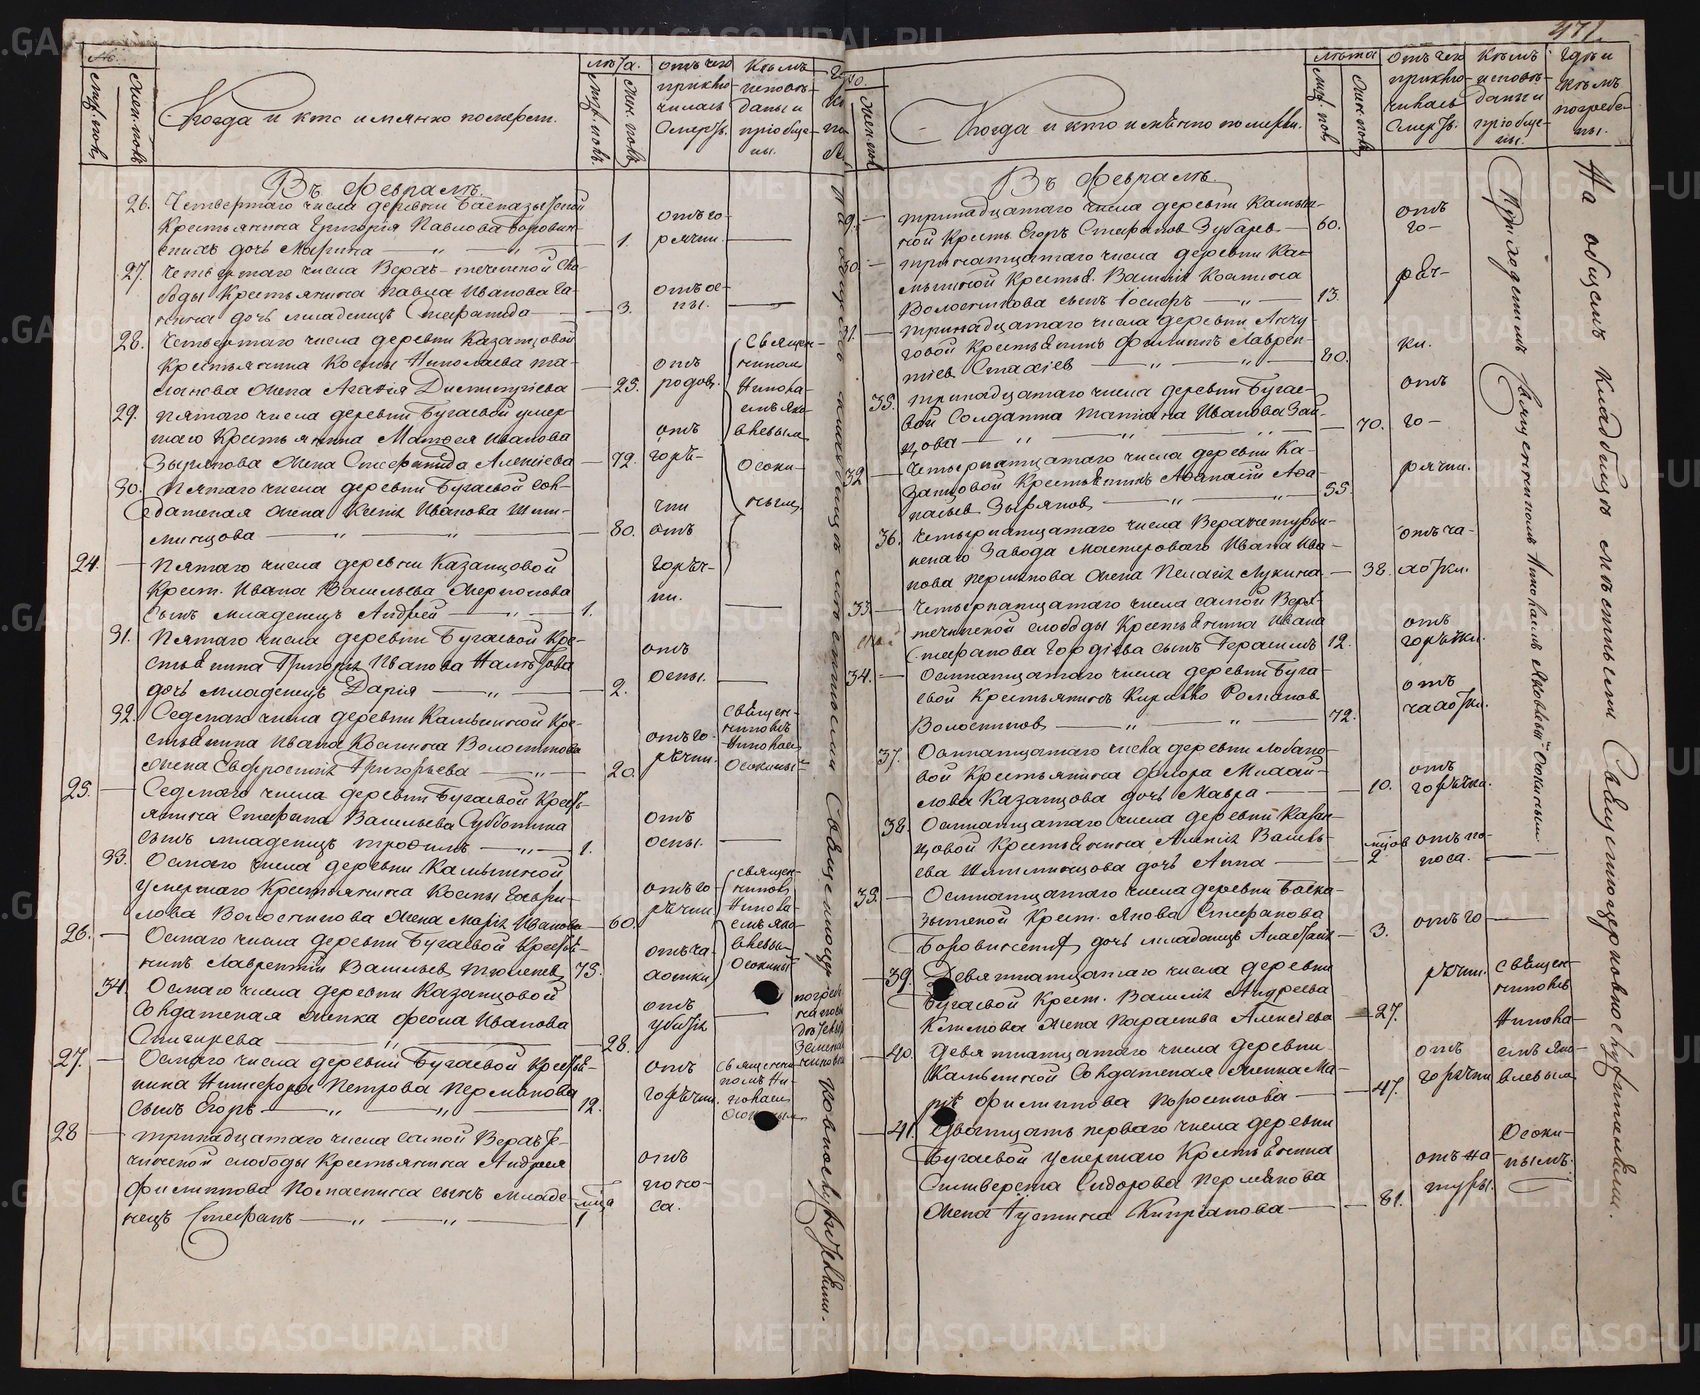 №
муж. полъ
жен. полъ
Когда и кто имянно померли.
лѣта.
муж. полъ
жен. полъ
отъ чего приклю-
чилась
смерть.
Кѣмъ исповѣ-
даны и
пріобще-
ны.
Въ Февралѣ.
26. Четвертаго числа деревни Басказыкской
Крестьянина Григорія Павлова Боровин-
скихъ дочь Марина 1. отъ го-
рячки
27. Четвертаго числа Верхъ-теченской Сло-
боды Крестьянина Павла Иванова
дочь младенецъ Стефанида 3. отъ ос-
пы.
28. Четвертаго числа деревни Казанцовой
Крестьянина Космы Николаева
жена Агафія Дмитріева 25. отъ
родовъ.
Священ-
никомъ
Никола-
емъ Яко-
влевымъ
Осоки-
нымъ
29. Пятаго числа деревни Бугаевой умер-
шаго Крестьянина Матвея Иванова
Зырянова жена Стефанида Алексіева 72. отъ
горя-
чки
30. Пятаго числа деревни Бугаевой Сол-
датская жена Ксенія Иванова
80. отъ
горяч-
ки.
24. Пятаго числа деревни Казанцовой
Крест. Ивана Васильева
сынъ младенецъ Андрей 1.
31. Пятаго числа деревни Бугаевой Кре-
стьянина Григорія Иванова
дочь младенецъ Дарія 2. отъ
оспы.
32. Седмаго числа деревни Камышной Кре-
стьянина Ивана Космина Волосникова
жена Евфросинія Григорьева 20. отъ го-
рячки.
Священ-
никомъ
Николаем
Осокины
25. Седмаго числа деревни Бугаевой Кресть-
янина Стефана Васильева Субботина
сынъ младенецъ Трофимъ 1. отъ
оспы.
33. Осмаго числа деревни Камышной
умершаго Крестьянина Космы Гаври-
лова Волосникова жена Марія Иванова 60. отъ го-
рячки
Священ-
никомъ
Никола-
емъ Яко-
влевым
Осокины
26. Осмаго числа деревни Бугаевой Кресть-
нинъ Лаврентій Васильевъ Тюленев 75. отъ ча-
хотки
34. Осмаго числа деревни Казанцовой
Солдатская женка Феона Иванова
Снигирева 28. отъ
убійст
27. Осмаго числа деревни Бугаевой Крестья-
нина Никифора Петрова Пермякова
сынъ Егоръ 12. отъ
горячки.
Священни
комъ Ни-
колаем
28 Тринадцатаго числа самой Верхъ Те-
ченской слободы Крестьянина Андрея
Филиппова сынъ младе-
нецъ Стефанъ 1 отъ
поно-
са.
На общемъ кладбищѣ мѣстными Священноцерковнослужителями.
471.
жен. пол
Когда и кто имянно померли.
лѣта
муж. пол
жен. полъ
отъ чего
приклю-
чилась
смерть.
Кѣмъ
исповѣ-
даны и
пріобще-
ны.
Гдѣ и
кѣмъ
погребе-
ны.
Въ Февралѣ.
9. Тринадцатаго числа деревни Камыш-
ной Крестья. Егоръ Стефановъ Зубаревъ 60. отъ
го-
30. Тринадцатаго числа деревни Ка-
мышной Крестья. Василія Космина
Волосникова сынъ Іосифъ 13. ряч-
31. Тринадцатаго числа деревни Анчу-
говой Крестьянинъ Филиппъ Лаврен-
тіев Стахіев 80. ки.
35. Тринадцатаго числа деревни Бугае-
вой Солдатка Татіана Иванова Зай-
цова 70. отъ
го-
32 Четырнатцатаго числа деревни Ка-
занцовой Крестьянинъ Афанасій Афа-
насьев Зырянов 55 рячки.
36. Четырнатцатаго числа Верхнетурьин-
скаго Завода Мастероваго Ивана Ива-
нова Пермякова жена Пелагія Лукина 38. отъ ча-
хотки.
33 Четырнатцатаго числа самой Верхъ-
теченской слободы Крестьянина Ивана
Стефанова сынъ Герасимъ 12. отъ
горячки.
34. Осмнатцатаго числа деревни Буга-
евой Крестьянинъ Кирилло Романов
Волосников 72. отъ
чахотки.
37. Осмнатцатаго числа деревни Лобано-
вой Крестьянина Флора Михай-
лова Казанцова дочь Мавра 10. отъ
горячка.
38. Осмнатцатаго числа деревни Казан-
цовой Крестьянина Алексія Василь-
ева дочь Анна 2 отъ по-
носа.
39. Осмнатцатаго числа деревни Баска-
зыкской Крест. Якова Стефанова
Боровинских дочь младенецъ Анастасія 3. отъ го-
рячки.
39. Девятнатцатаго числа деревни
Бугаевой Крест. Василія Андреева
Климова жена Параскева Алексіева 27.
Священ-
никомъ
Никола-
емъ Яко-
влевым
Осоки-
нымъ.
40. Девятнатцатаго числа деревни
Камышной Солдатская женка Ма-
рія Филиппова Поросенкова 47. отъ
горячки
41. Дватцать перваго числа деревни
Бугаевой умершаго Крестьянина
Силиверста Сидорова Пермякова
жена Устина Кипріанова 81. отъ на-
туры.
Приходскимъ Священникомъ Николаемъ Яковлевымъ Осокинымъ
На общемъ кладбищѣ мѣстными Священноцерковнослужителями.